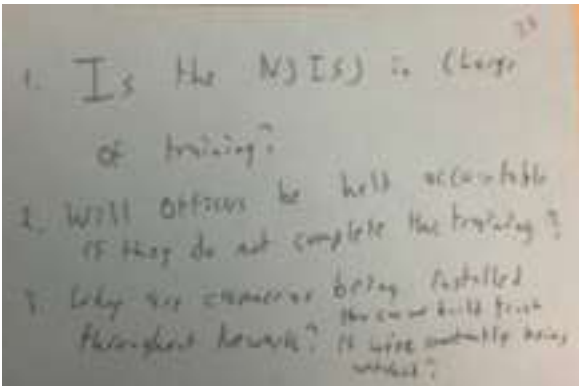 1. Is the NJISJ in charge
of training?
2. Will officers be held accountable
if they do not complete the training?
3. Why are cameras being installed
throughout Newark? How can we build trust
if we're constantly being
watched?